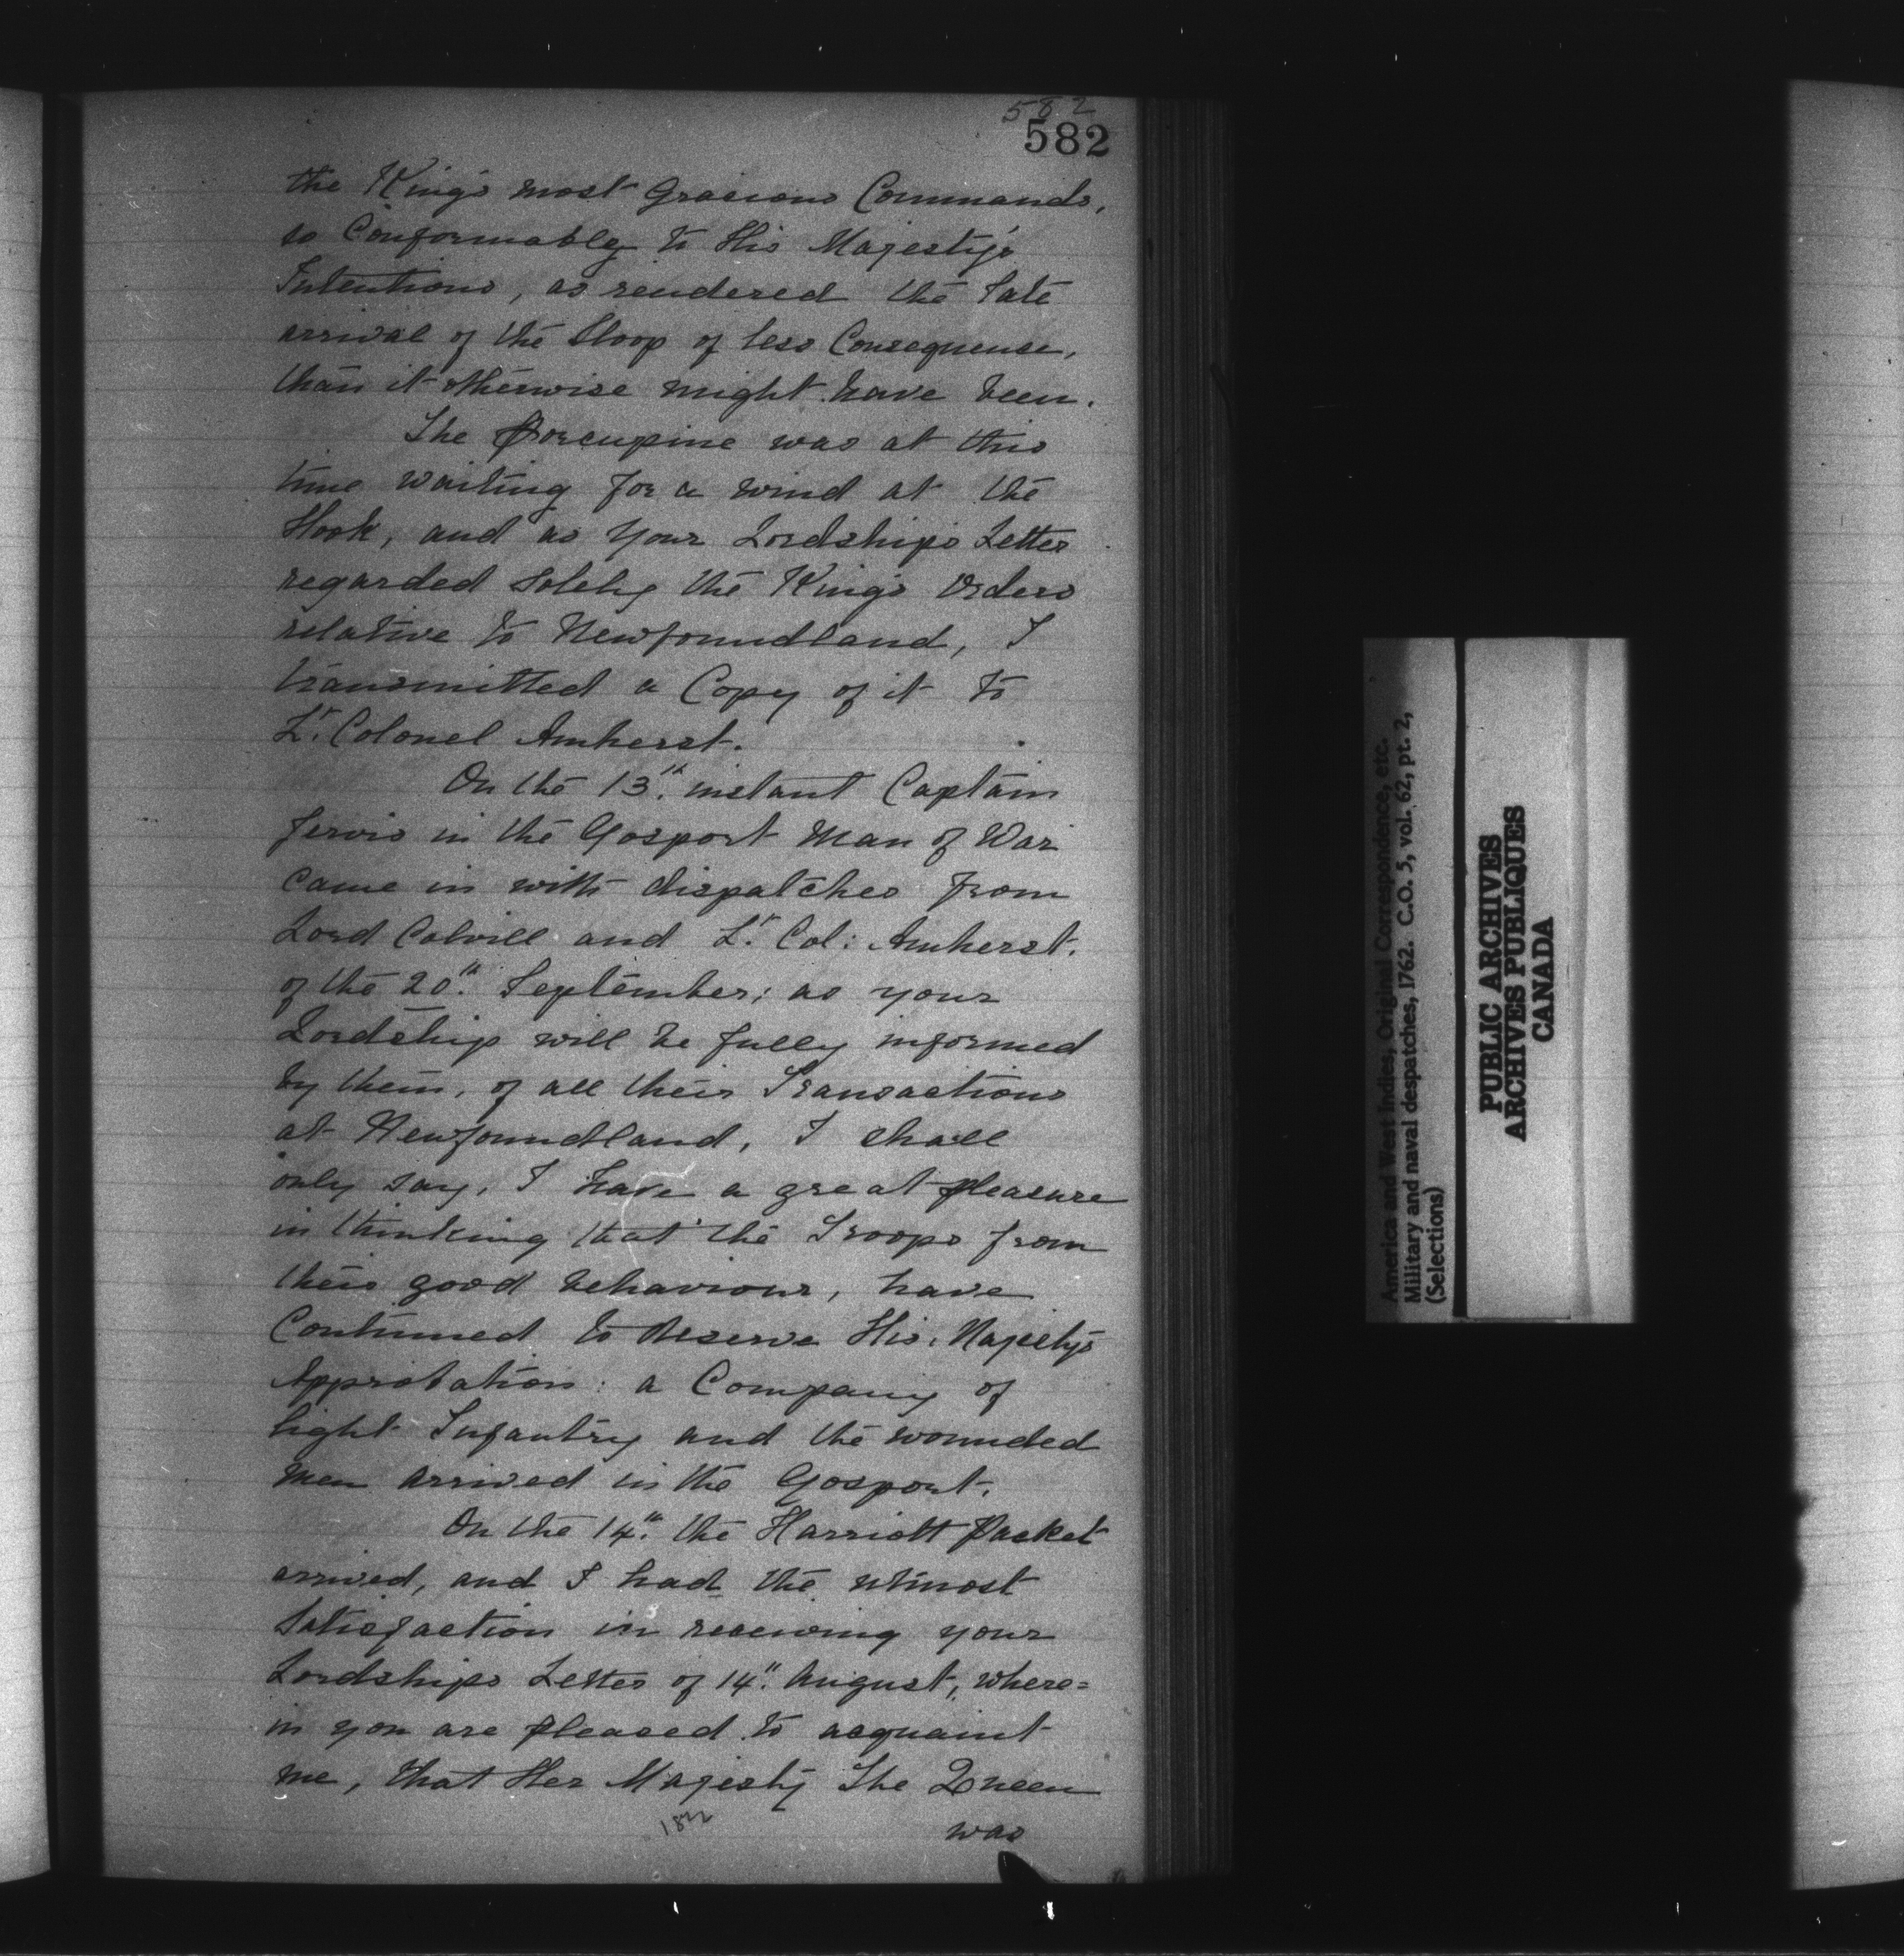 582
582
the King's most Gracious Commands,
so Conformably to His Majesty's
Intentions, as rendered the late
arrival of the Sloop of less Consequense,
than it otherwise might have been.
The Porcupine was at this
time waiting for a wind at the
Hook, and as Your Lordships Letter
regarded Solely the King's Orders
relative to Newfoundland, I
transmitted a Copy of it to
Lt. Colonel Amherst.
On the 13th. instant Captain
Jervis in the Gosport Man of War
came in with dispatches from
Lord Colvill and Lt. Col: Amherst.
of the 20th. September; as your
Lordship will be fully informed
by them, of all their Transactions
at Newfoundland, I shall
only say, I have a great pleasure
in thinking that the Troops from
their good behaviour, have
Continued to Deserve His Majesty's
Approbation: a Company of
light Infantry and the wounded
Men arrived in the Gosport.
On the 14th. the Harriott Packet
arrived, and I had the utmost
Satisfaction in receiving your
Lordships Letter of 14th. August, where=
in you are pleased to acquaint
me, that Her Majesty The Queen
was
America and West Indies, Original Correspondence, etc.
Military and naval despatches, 1762. C.O. 5, vol. 62, pt. 2,
(Selections)
PUBLIC ARCHIVES
ARCHIVES PUBLIQUES
CANADA